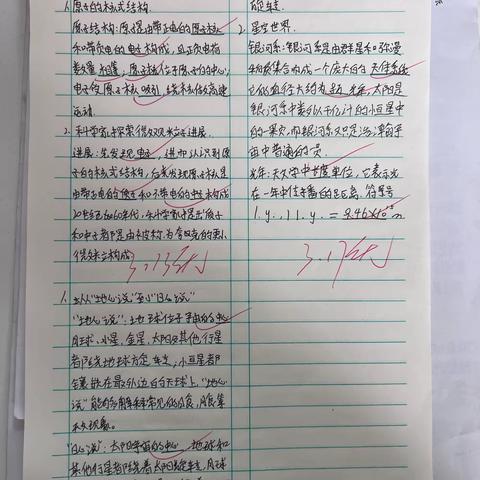 1. 原子的核式结构.
原子结构:原子是由带正电的原子核
和带负电的电子构成,且正负电荷
数量相等,原子核位于原子的中心,
电子受原子核吸引,绕核做高速
运动.
2. 科学家探索微观粒子进展.
进展:先发现电子,进而认识到原
子的核式结构,后来发现原子核是
由带正电的质子和不带电的中子构成
20世纪60年代,科学家提出质子
和中子都是由被称为夸克的更小
微粒构成
3.13
1. 从"地心说"到"日心说"
"地心说":地球位于宇宙的中心
月球、水星、金星、太阳及其他行星
都绕地球旋转,恒星都
镶嵌在最外边的天球上,"地心
说"能解释常见的日食,月食等
天文现象。
"日心说":太阳是宇宙的中心,地球和
其他行星都绕着太阳旋转,月球
旋转.
2. 星空世界.
银河系:银河系是由群星和弥漫
物质集合而成一个庞大的天体系统
它的直径大约有 光年,太阳是
银河系中数以千亿计的恒星中
的一颗,而银河系又只是浩瀚的宇
宙中普通的一员.
光年:天文学中长度单位,它表示光
在一年中传播的距离. 符号
l.y., 1l.y. = 9.46×10¹⁵m
3.17